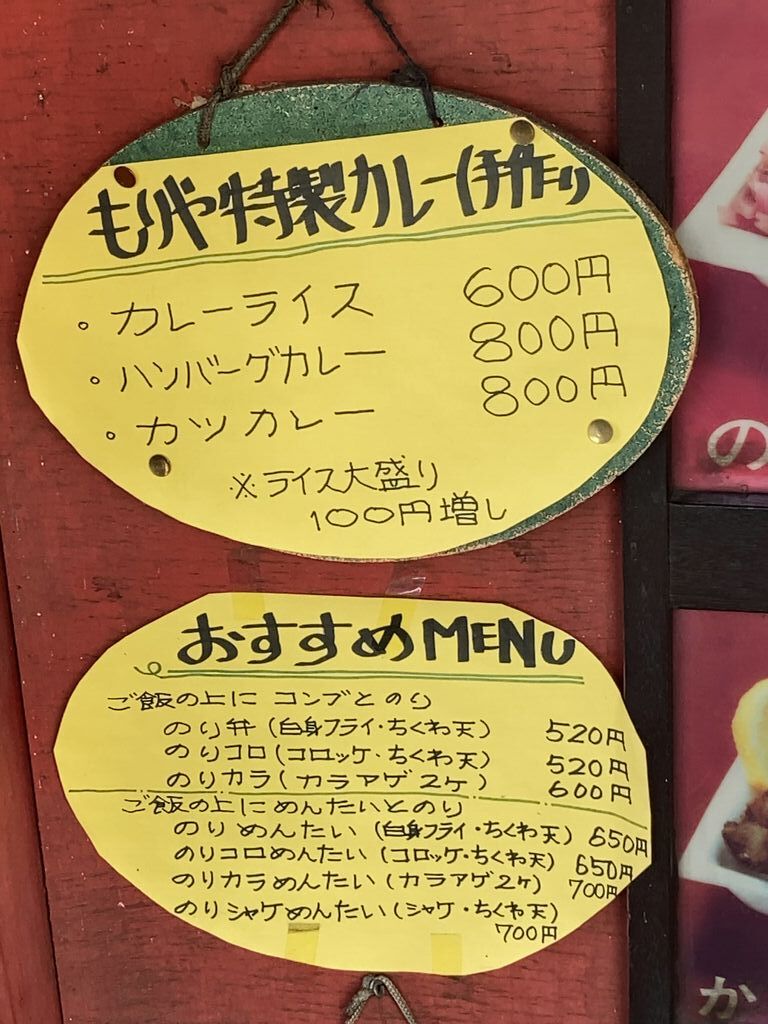 もりや特製カレー(手作り
・カレーライス 600円
・ハンバーグカレー 800円
・カツカレー 800円
※ライス大盛り
100円増し
おすすめMENU
ご飯の上に コンブとのり
のり弁(白身フライ・ちくわ天) 520円
のりコロ(コロッケ・ちくわ天) 520円
のりカラ(カラアゲ2ヶ) 600円
ご飯の上にめんたいとのり
のりめんたい(白身フライ・ちくわ天) 650円
のりコロめんたい(コロッケ・ちくわ天) 650円
のりカラめんたい(カラアゲ2ヶ) 700円
のりシャケめんたい(シャケ・ちくわ天)
700円
の
か